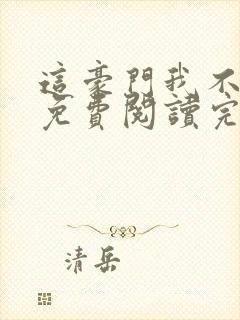 這豪門我不
免費閱讀完
清岳